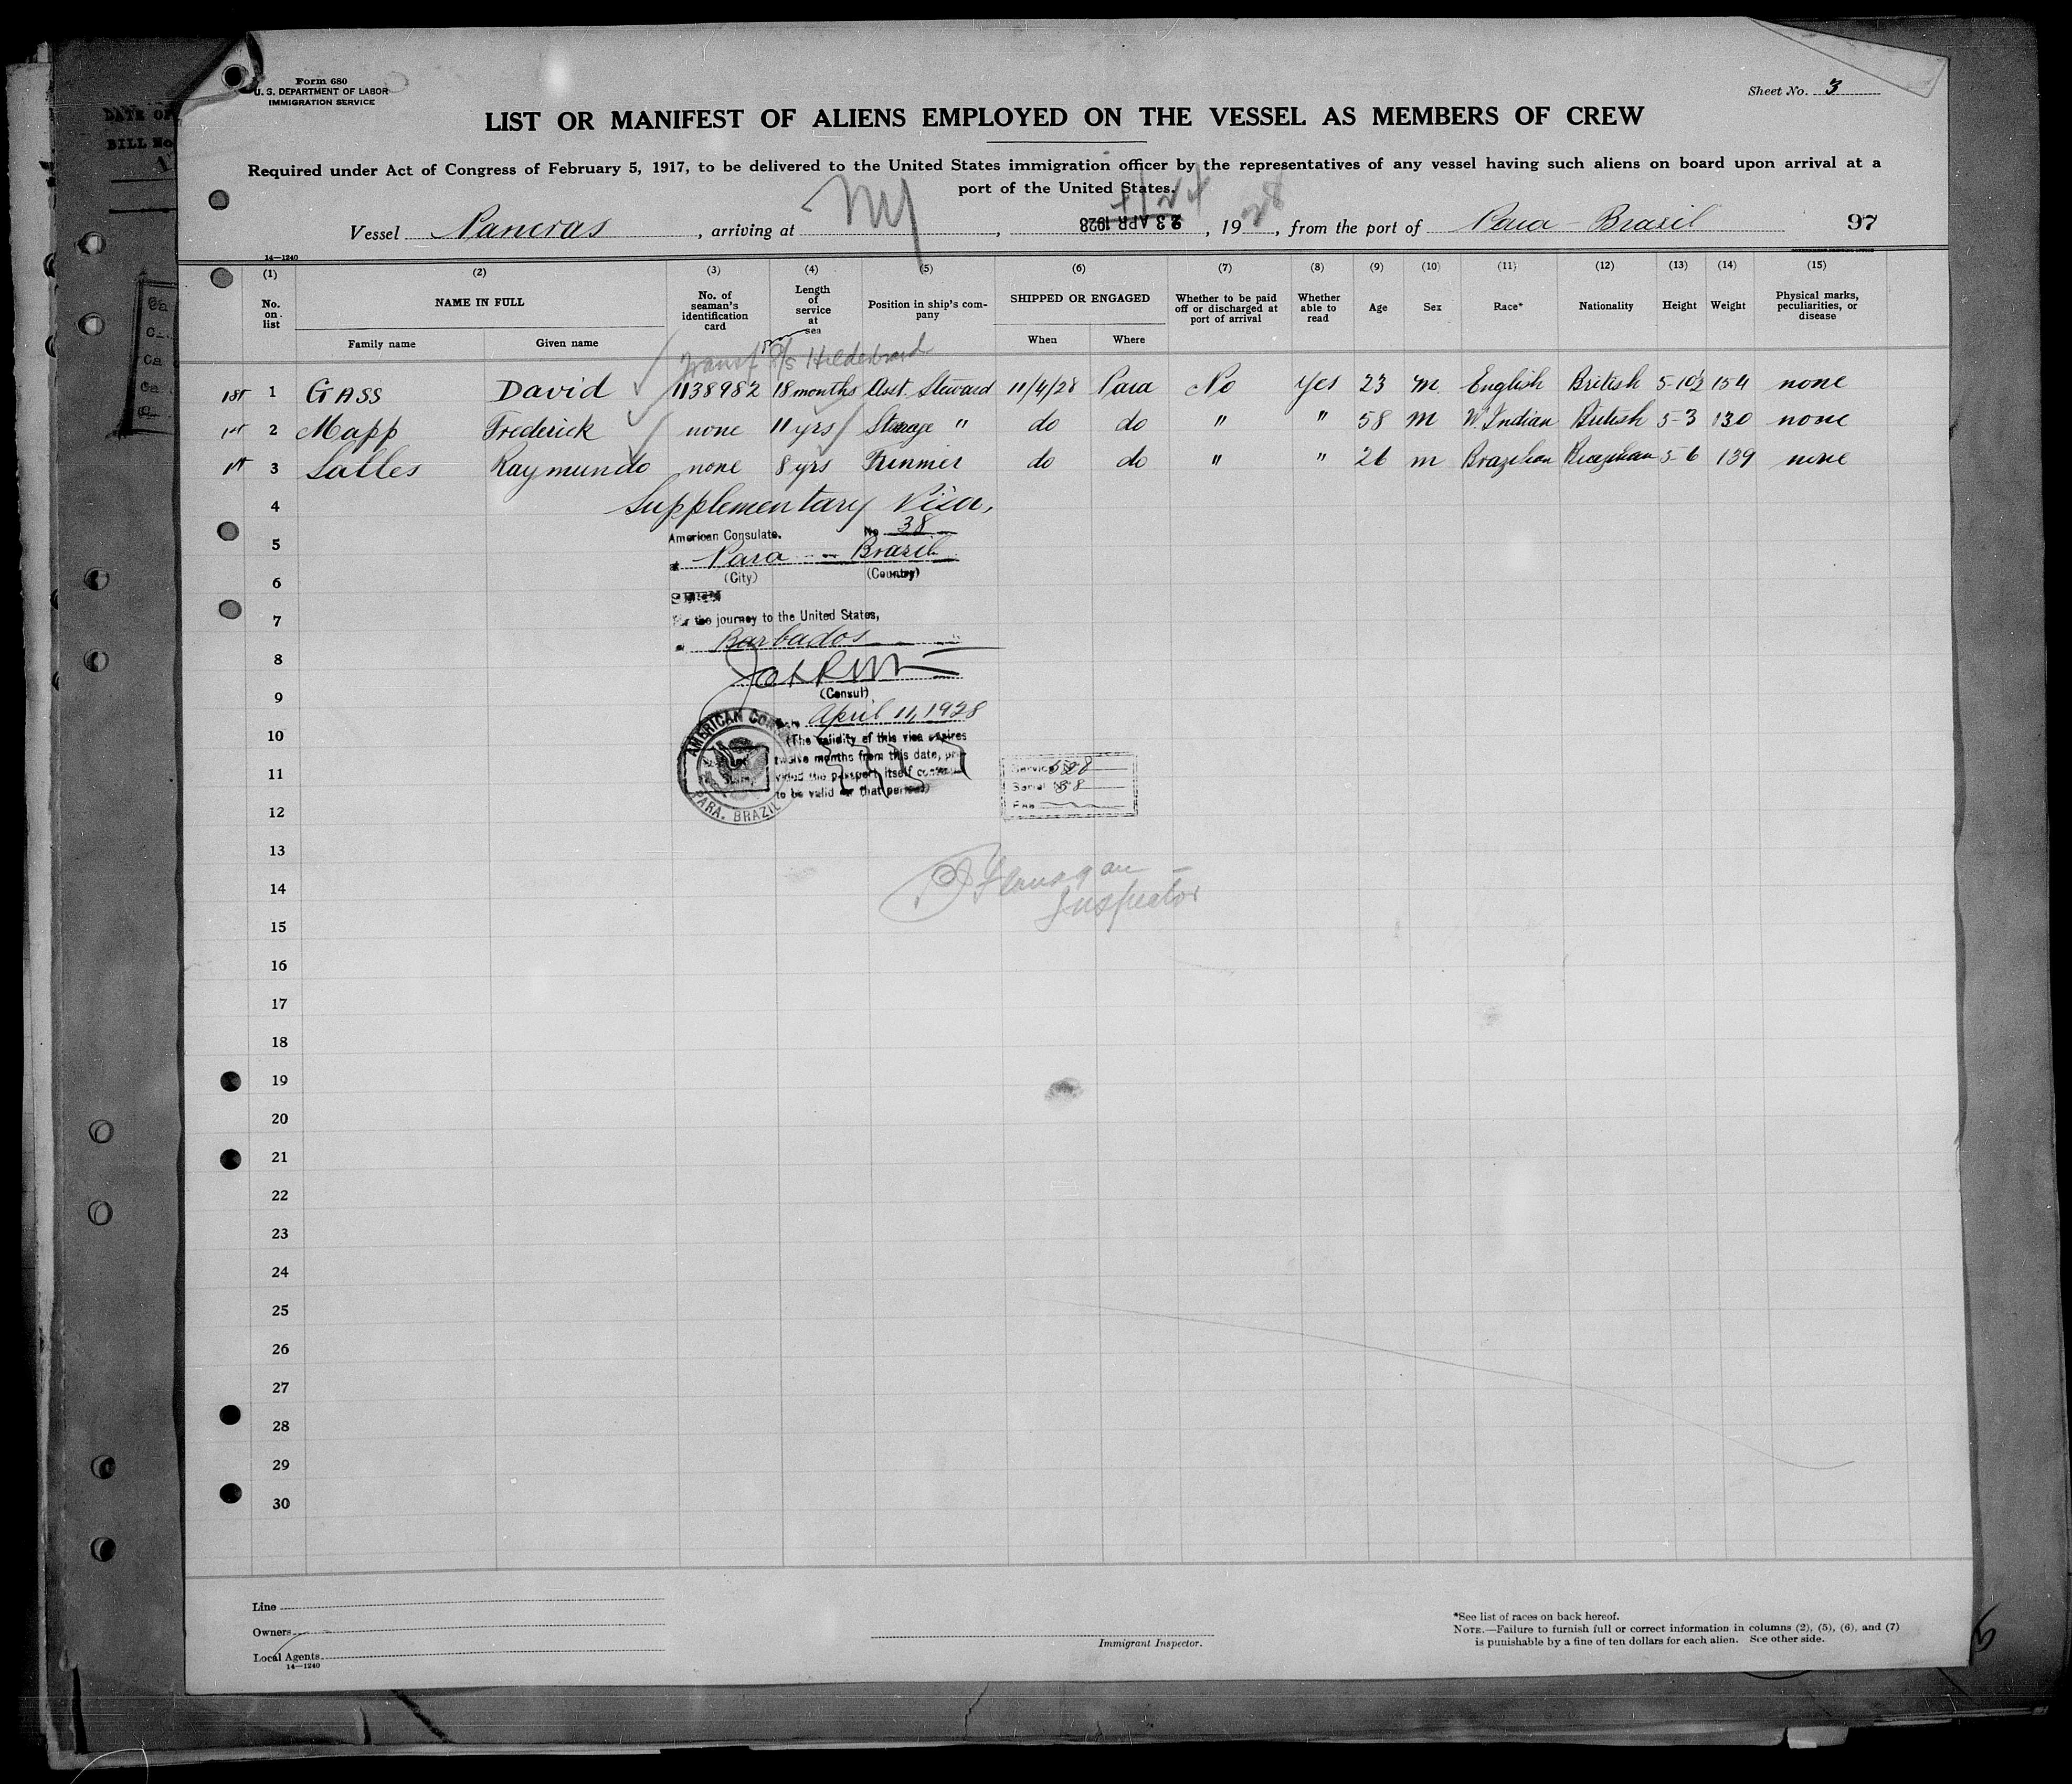 Form 680
U. S. DEPARTMENT OF LABOR
IMMIGRATION SERVICE
Sheet No. 3
LIST OR MANIFEST OF ALIENS EMPLOYED ON THE VESSEL AS MEMBERS OF CREW
Required under Act of Congress of February 5, 1917, to be delivered to the United States immigration officer by the representatives of any vessel having such aliens on board upon arrival at a
port of the United States.
Vessel Pancras, arriving at NY, 23 APR 1928 4/24, 1928, from the port of Para Brazil 97
14—1240
(1) (2) (3) (4) (5) (6) (7) (8) (9) (10) (11) (12) (13) (14) (15)
No. on list
NAME IN FULL
Family name
Given name
No. of seaman's identification card
Length of service at sea
Position in ship's company
SHIPPED OR ENGAGED
When
Where
Whether to be paid off or discharged at port of arrival
Whether able to read
Age
Sex
Race*
Nationality
Height
Weight
Physical marks, peculiarities, or disease
Transf from S/S Hildebrand
1st 1 GASS David 1138982 18 months Asst. Steward 11/4/28 Para No Yes 23 m English British 5-10½ 154 none
1st 2 Mapp Frederick none 11 yrs Steerage " do do " " 58 m W. Indian British 5-3 130 none
1st 3 Salles Raymundo none 8 yrs Trimmer do do " " 26 m Brazilian Brazilian 5-6 139 none
4 Supplementary Visa,
5 American Consulate. No 38
at Para Brazil
6 (City) (Country)
7 For the journey to the United States,
Barbados
8
9 (Consul)
Date April 11, 1928
10 (The validity of this visa expires
11 twelve months from this date, provided the passport itself continues
12 to be valid for that period)
AMERICAN CONSULATE
PARA, BRAZIL
Service 528
Serial 38
Fee
13
14 Flanagan
Inspector
15
16
17
18
19
20
21
22
23
24
25
26
27
28
29
30
Line
Owners
Local Agents
14—1240
Immigrant Inspector.
*See list of races on back hereof.
NOTE.—Failure to furnish full or correct information in columns (2), (5), (6), and (7)
is punishable by a fine of ten dollars for each alien. See other side.